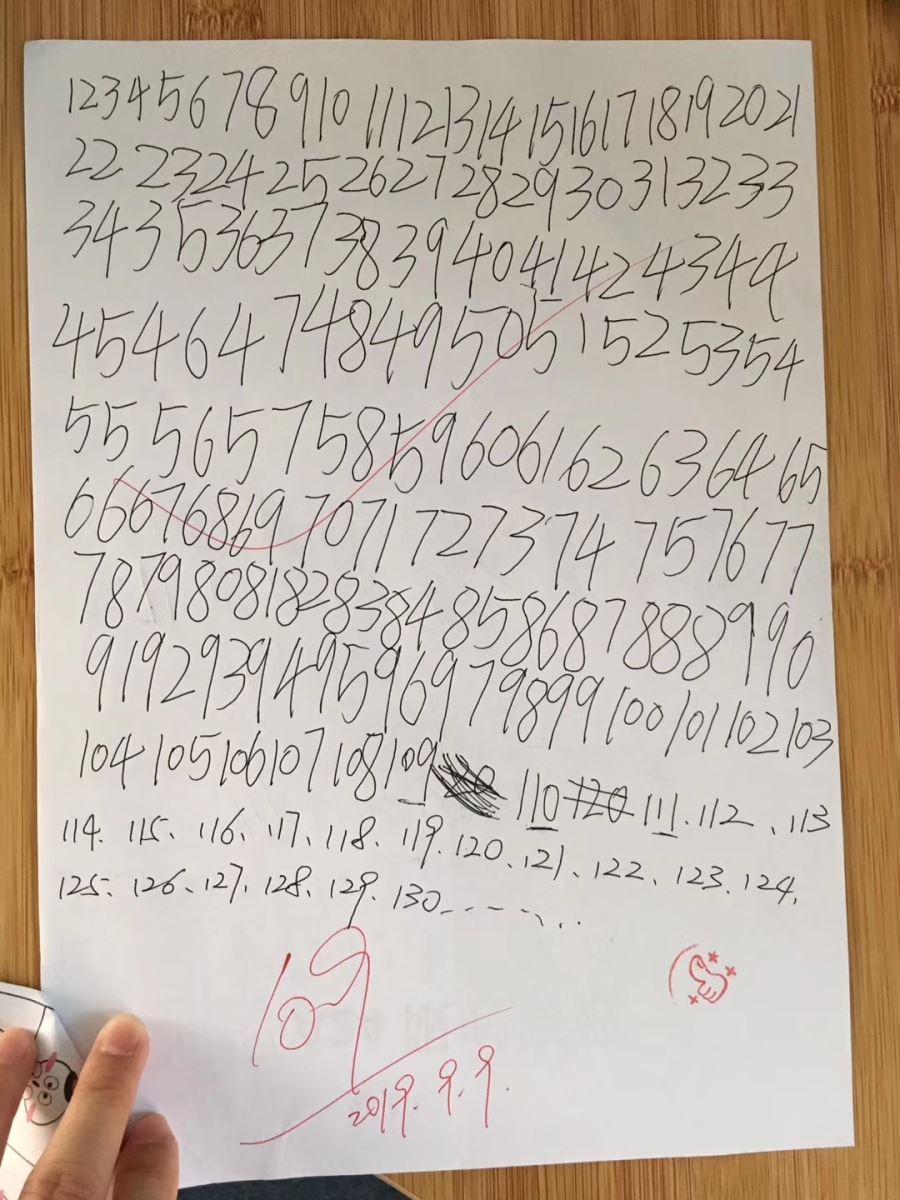 123456789101112131415161718192021
222324252627282930313233
3435363738394041424344
45464748495051525354
5556575859606162636465
666768697071727374757677
78798081828384858687888990
919293949596979899100101102103
104105106107108109 110 120 111.112、113
114. 115、116、117、118、119.120、121、122、123、124.
125、126、127、128、129.130......
109
2019.9.9.